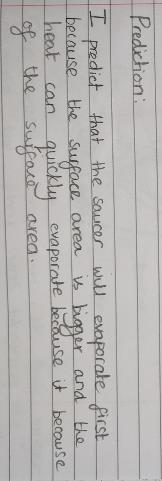 Prediction:
I predict that the saucer will evaporate first
because the surface area is bigger and the
heat can quickly evaporate because it because
of the surface area.